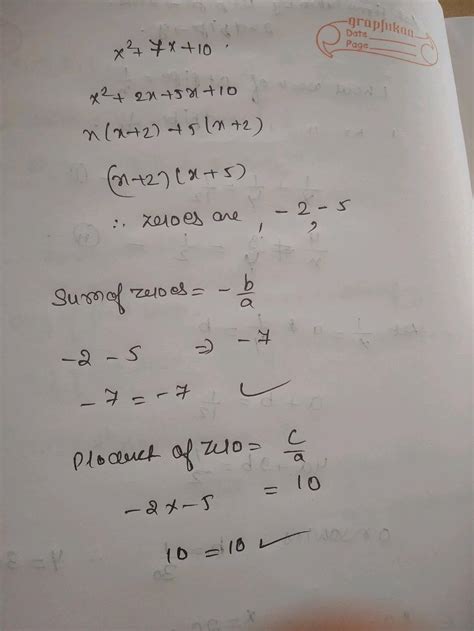 grapfukaa
Date
Page
x²+7x+10
x²+2x+5x+10
x(x+2)+5(x+2)
(x+2)(x+5)
∴ zeroes are, -2, -5
Sum of zeroes = -b/a
-2-5 ⇒ -7
-7 = -7 ✓
Product of zero = c/a
-2x-5 = 10
10 = 10 ✓